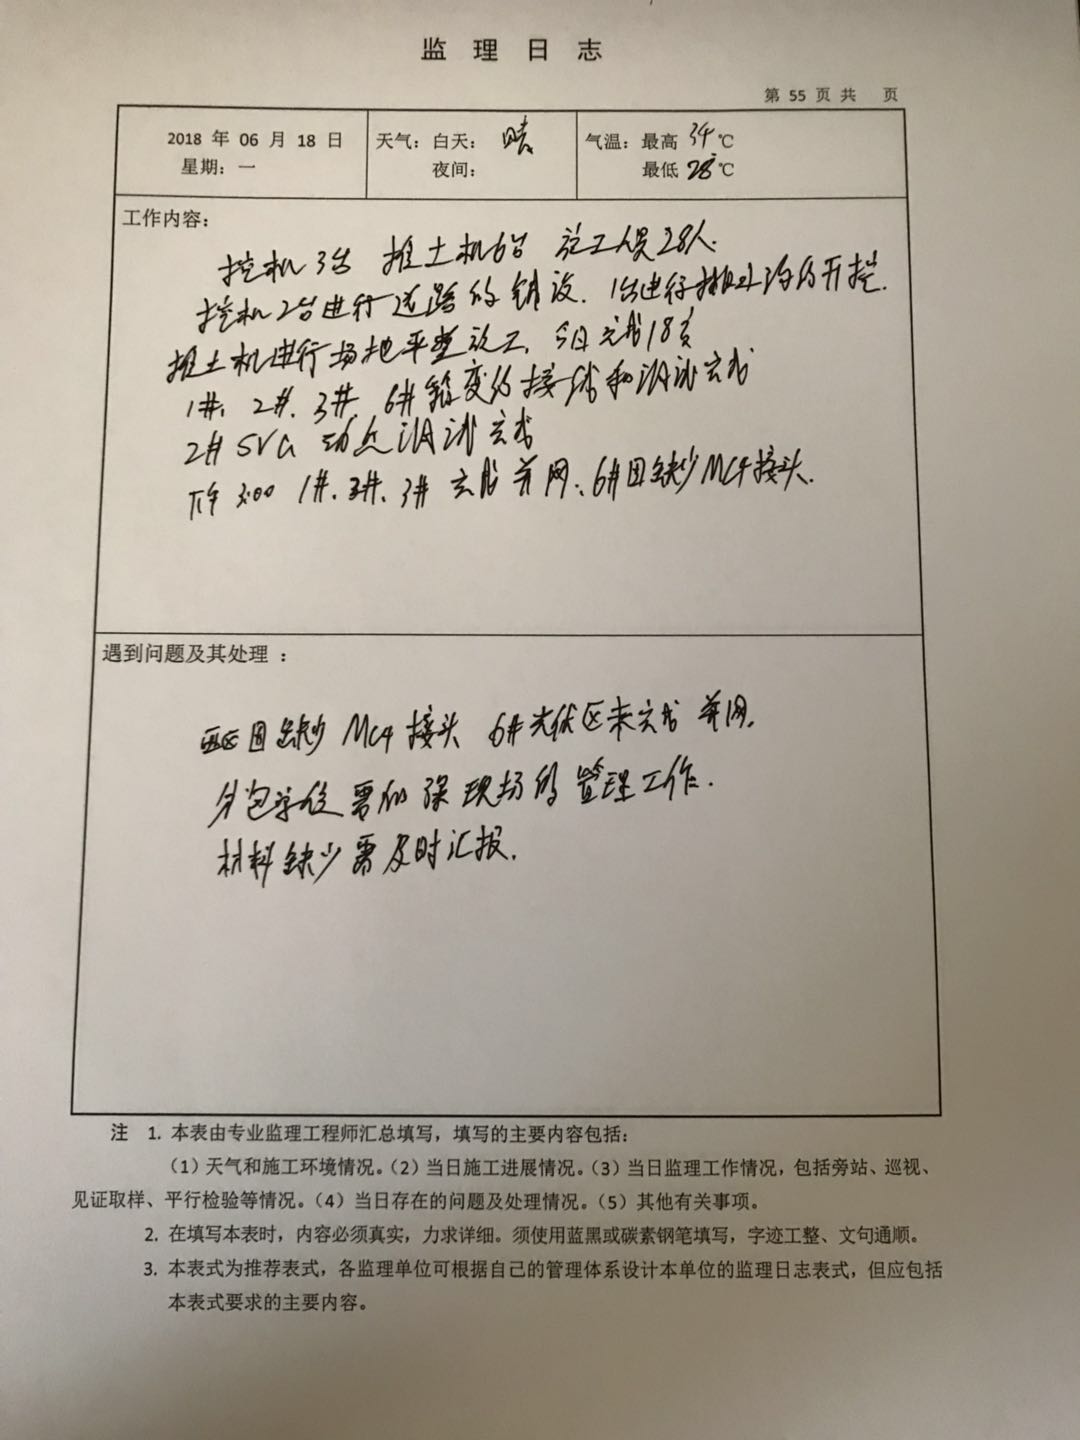 监理日志
第 55 页 共 页
2018 年 06 月 18 日 天气：白天： 晴 气温：最高 34 ℃
星期：一 夜间： 最低 28 ℃
工作内容：
挖机3台 推土机6台 施工人员28人.
挖机2台进行道路的铺设. 1台进行排水沟的开挖.
推土机进行场地平整施工, 今日完成18亩
1#、2#、3#、6#箱变的接线和调试完成
2# SVG 动态调试完成
下午 3:00 1#、2#、3# 完成并网、6#因缺少MC4接头.
遇到问题及其处理 ：
因缺少 MC4 接头 6#光伏区未完成 并网.
分包单位需加强现场的管理工作.
材料缺少需及时汇报.
注 1. 本表由专业监理工程师汇总填写，填写的主要内容包括：
（1）天气和施工环境情况。（2）当日施工进展情况。（3）当日监理工作情况，包括旁站、巡视、
见证取样、平行检验等情况。（4）当日存在的问题及处理情况。（5）其他有关事项。
2. 在填写本表时，内容必须真实，力求详细。须使用蓝黑或碳素钢笔填写，字迹工整、文句通顺。
3. 本表式为推荐表式，各监理单位可根据自己的管理体系设计本单位的监理日志表式，但应包括
本表式要求的主要内容。